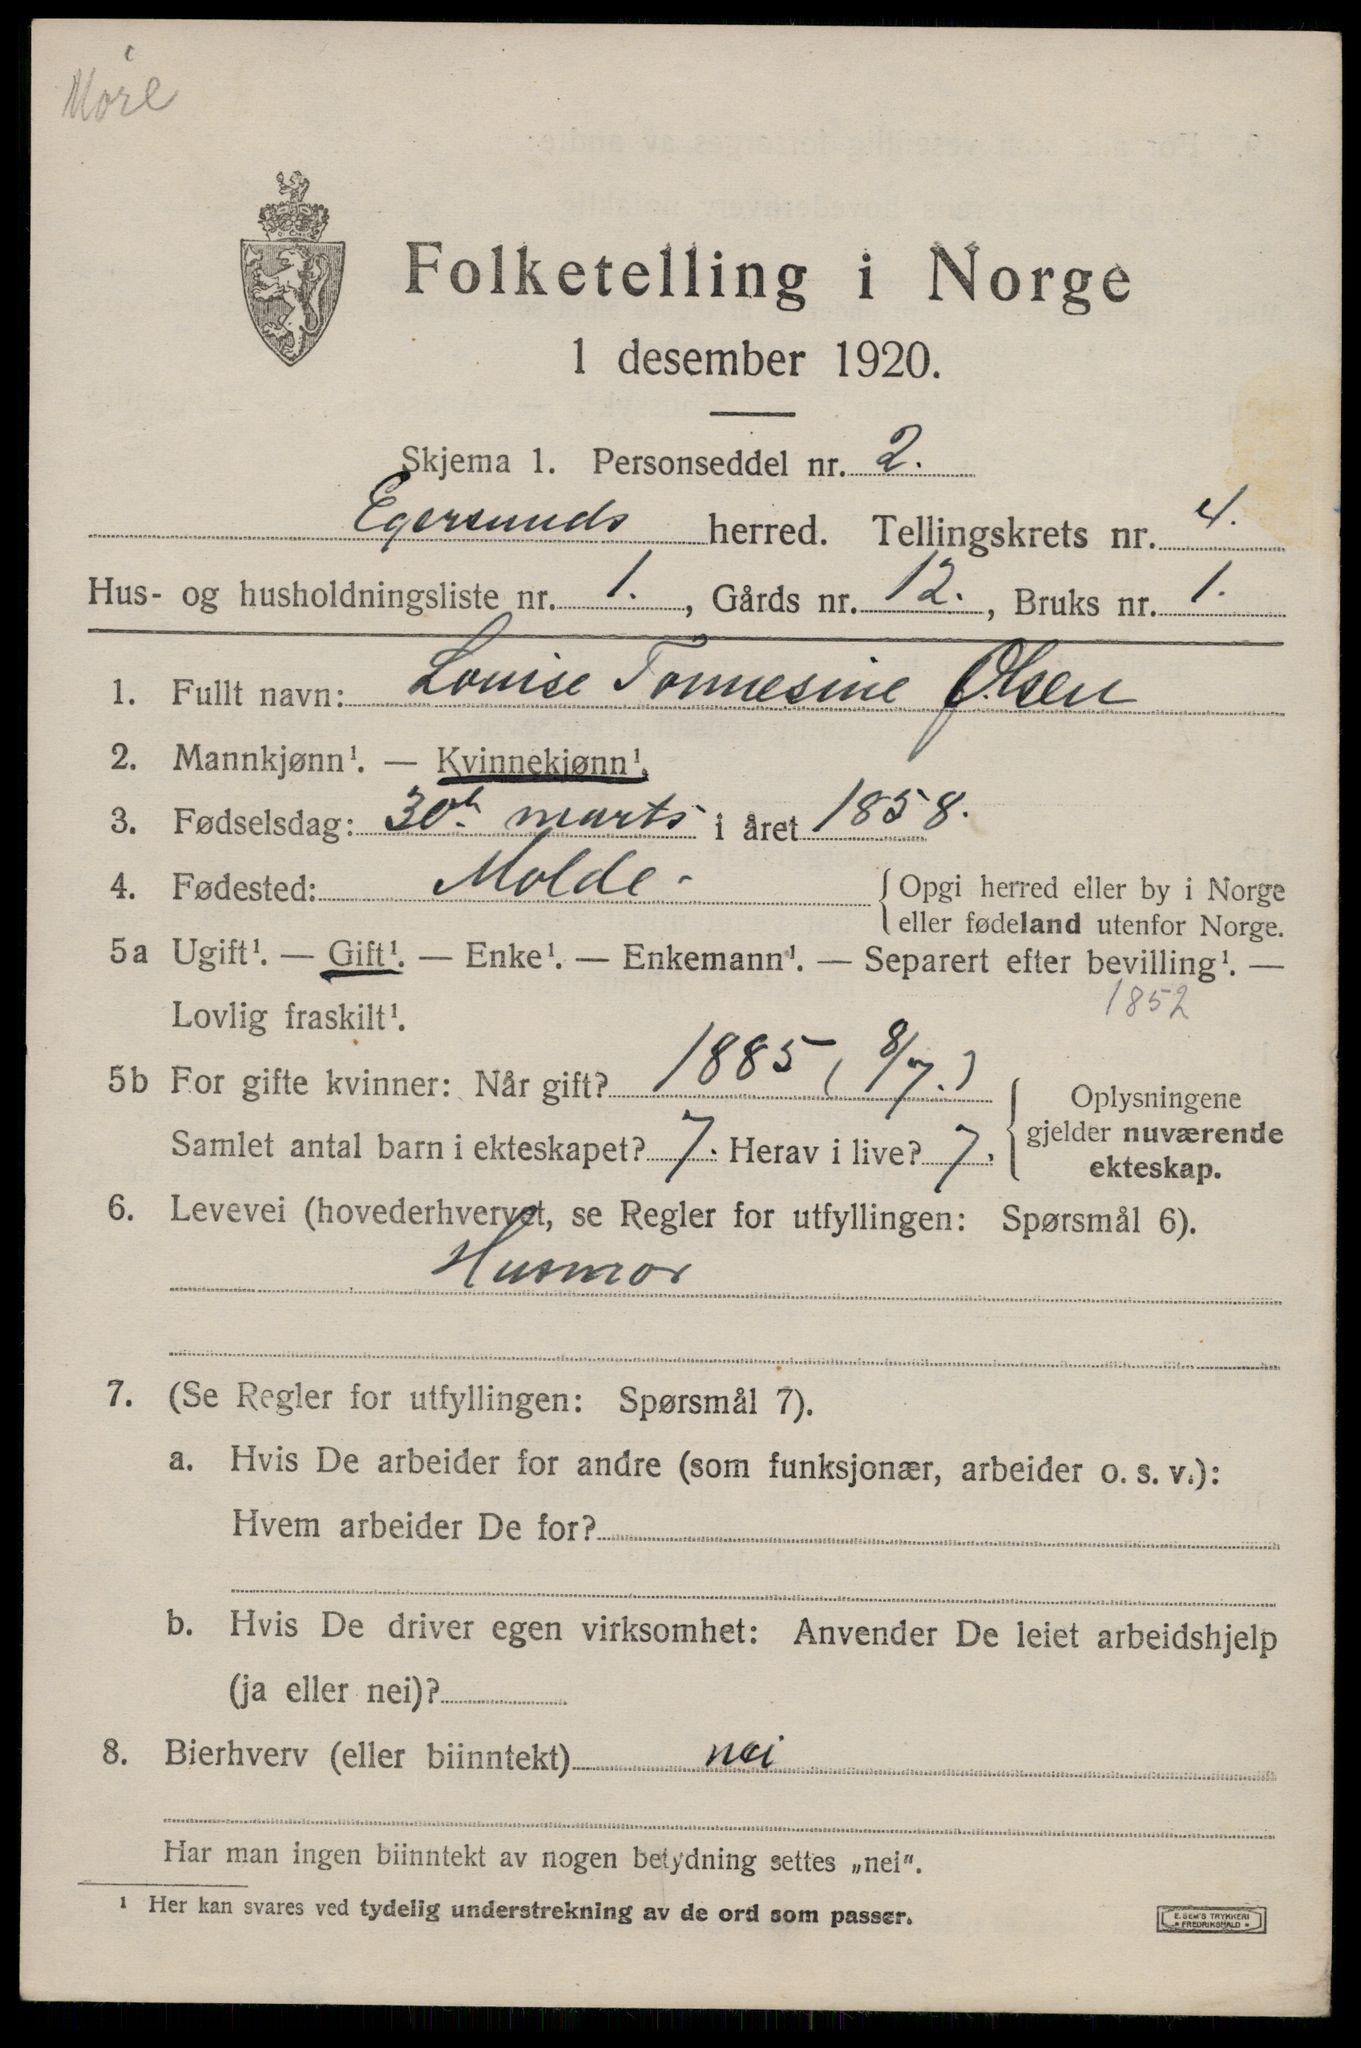 Möre
Folketelling i Norge
1 desember 1920.
Skjema 1. Personseddel nr. 2.
Egersunds herred. Tellingskrets nr. 4.
Hus- og husholdningsliste nr. 1., Gårds nr. 12., Bruks nr. 1.
1. Fullt navn: Louise Tonnesine Olsen
2. Mannkjønn¹. — Kvinnekjønn¹.
3. Fødselsdag: 30th marts i året 1858.
4. Fødested: Molde - { Opgi herred eller by i Norge
eller fødeland utenfor Norge.
5a Ugift¹. — Gift¹. — Enke¹. — Enkemann¹. — Separert efter bevilling¹. —
Lovlig fraskilt¹. 1852
5b For gifte kvinner: Når gift? 1885 (8/7.)
Samlet antal barn i ekteskapet? 7. Herav i live? 7.
{ Oplysningene
gjelder nuværende
ekteskap.
6. Levevei (hovederhvervet, se Regler for utfyllingen: Spørsmål 6).
Husmor
7. (Se Regler for utfyllingen: Spørsmål 7).
a. Hvis De arbeider for andre (som funksjonær, arbeider o. s. v.):
Hvem arbeider De for?
b. Hvis De driver egen virksomhet: Anvender De leiet arbeidshjelp
(ja eller nei)?
8. Bierhverv (eller biinntekt) nei
Har man ingen biinntekt av nogen betydning settes „nei".
¹ Her kan svares ved tydelig understrekning av de ord som passer.
E. SEM'S TRYKKERI
* FREDRIKSHALD *